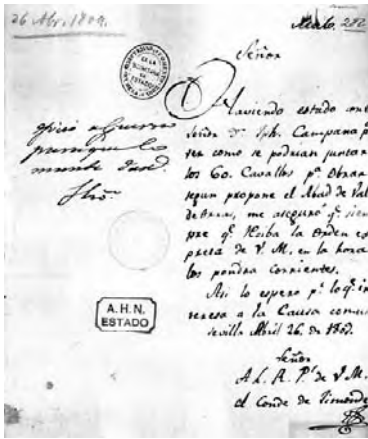 26 Abr. 1809.
Señor
Haviendo estado con
Señor Dn. Campana pa
ver como se podrian juntar
los 60. Cavallos pa. Obrar
segun propone el Abad de Val
de Arenas, me aseguró q. siem
pre q. Reciba la Orden ex
presa de V. M. en la hora
los pondra corrientes.
Asi lo espero pr. lo q. in
teresa a la Causa comun
Sevilla Abril 26. de 1809.
Señor
A L. R. Ps. de V. M.
el Conde de
oficio a Guerra
para que lo
mande
A.H.N.
ESTADO